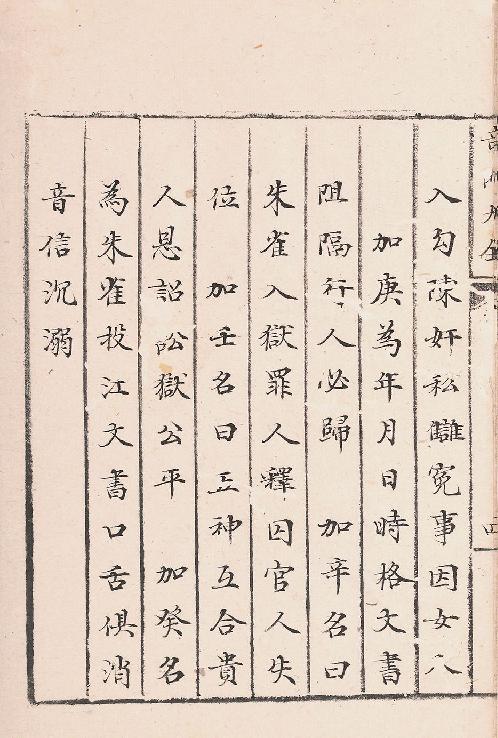 入勾陳奸私讎冤事因女人
加庚為年月日時格文書
阻隔行人必歸　加辛名曰
朱雀入獄罪人釋囚官人失
位　加壬名曰五神互合貴
人恩詔訟獄公平　加癸名
為朱雀投江文書口舌俱消
音信沉溺